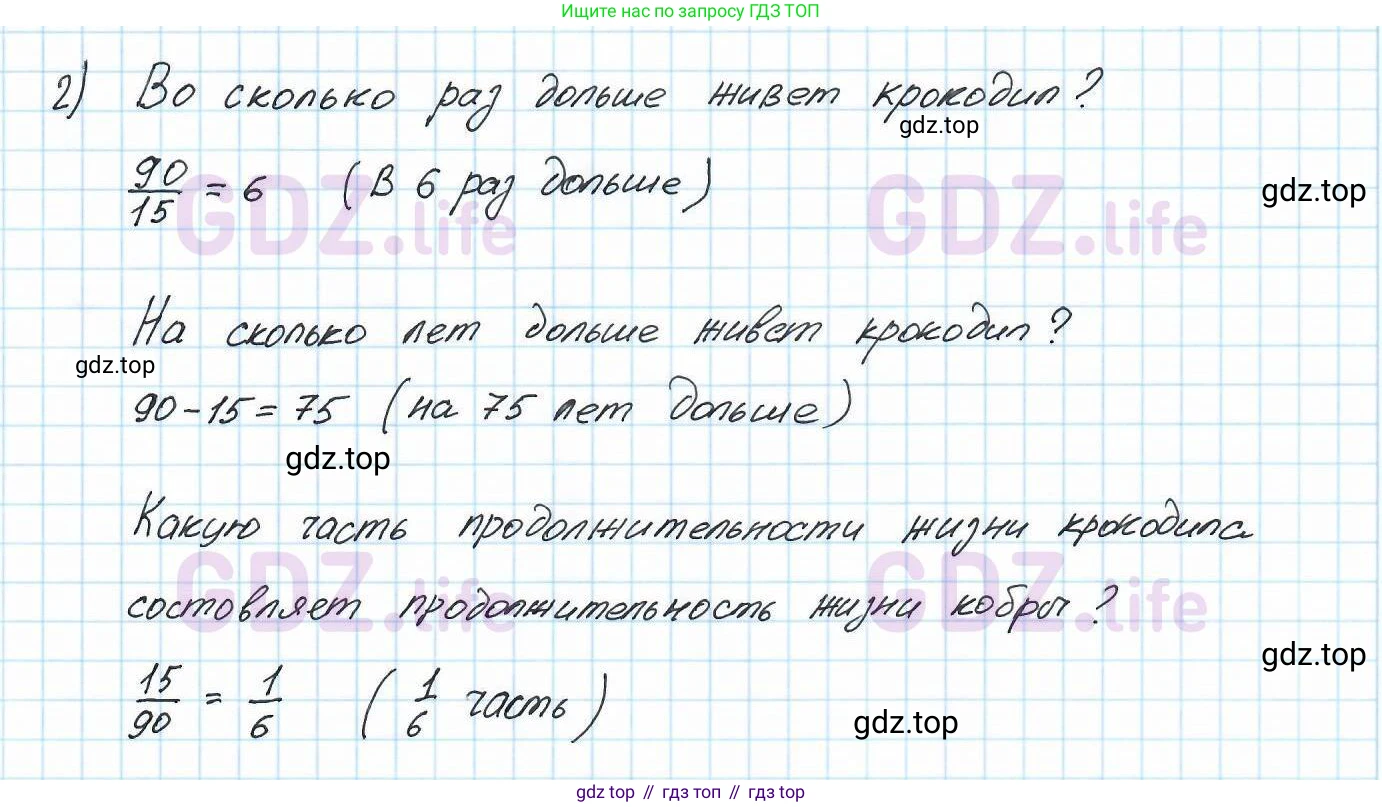 Ищите нас по запросу ГДЗ ТОП
2) Во сколько раз дольше живет крокодил?
gdz.top
90/15 = 6 (в 6 раз дольше)
gdz.top
GDZ.life GDZ.life
На сколько лет дольше живет крокодил?
gdz.top
90 - 15 = 75 (на 75 лет дольше)
gdz.top
Какую часть продолжительности жизни крокодила
GDZ.life GDZ.life
состовляет продолжительность жизни кобры?
gdz.top
15/90 = 1/6 (1/6 часть)
gdz.top
gdz top // гдз топ // гдз top